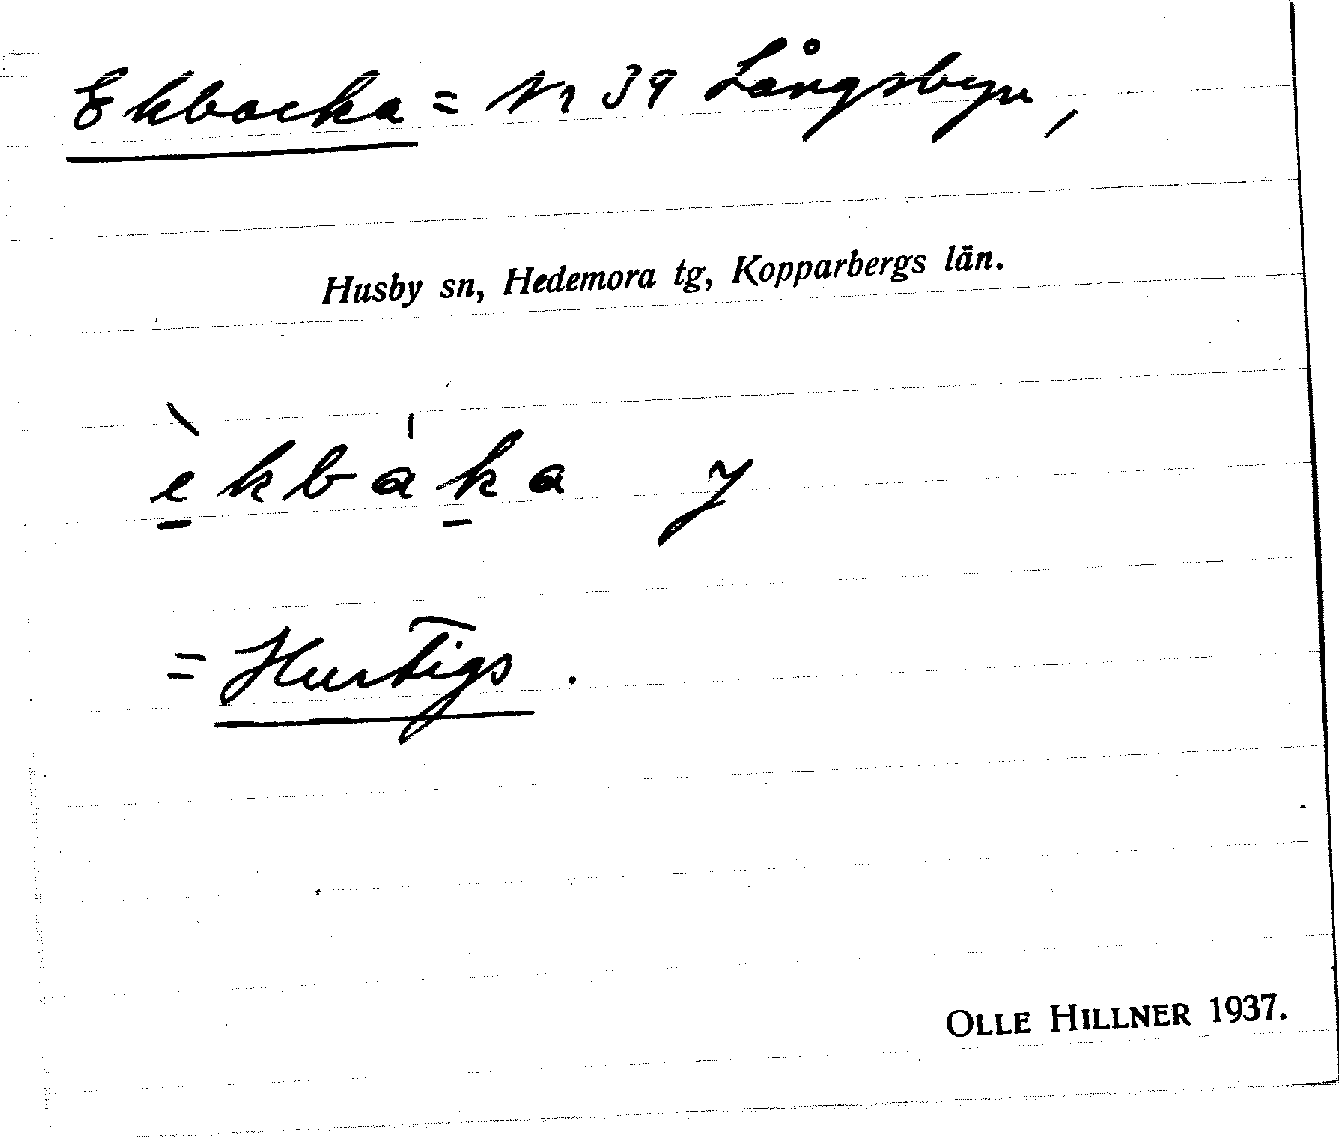 Ekbacka = Nr 39 Långsbyn,
Husby sn, Hedemora tg, Kopparbergs län.
èkbaka
= Hurtigs.
OLLE HILLNER 1937.